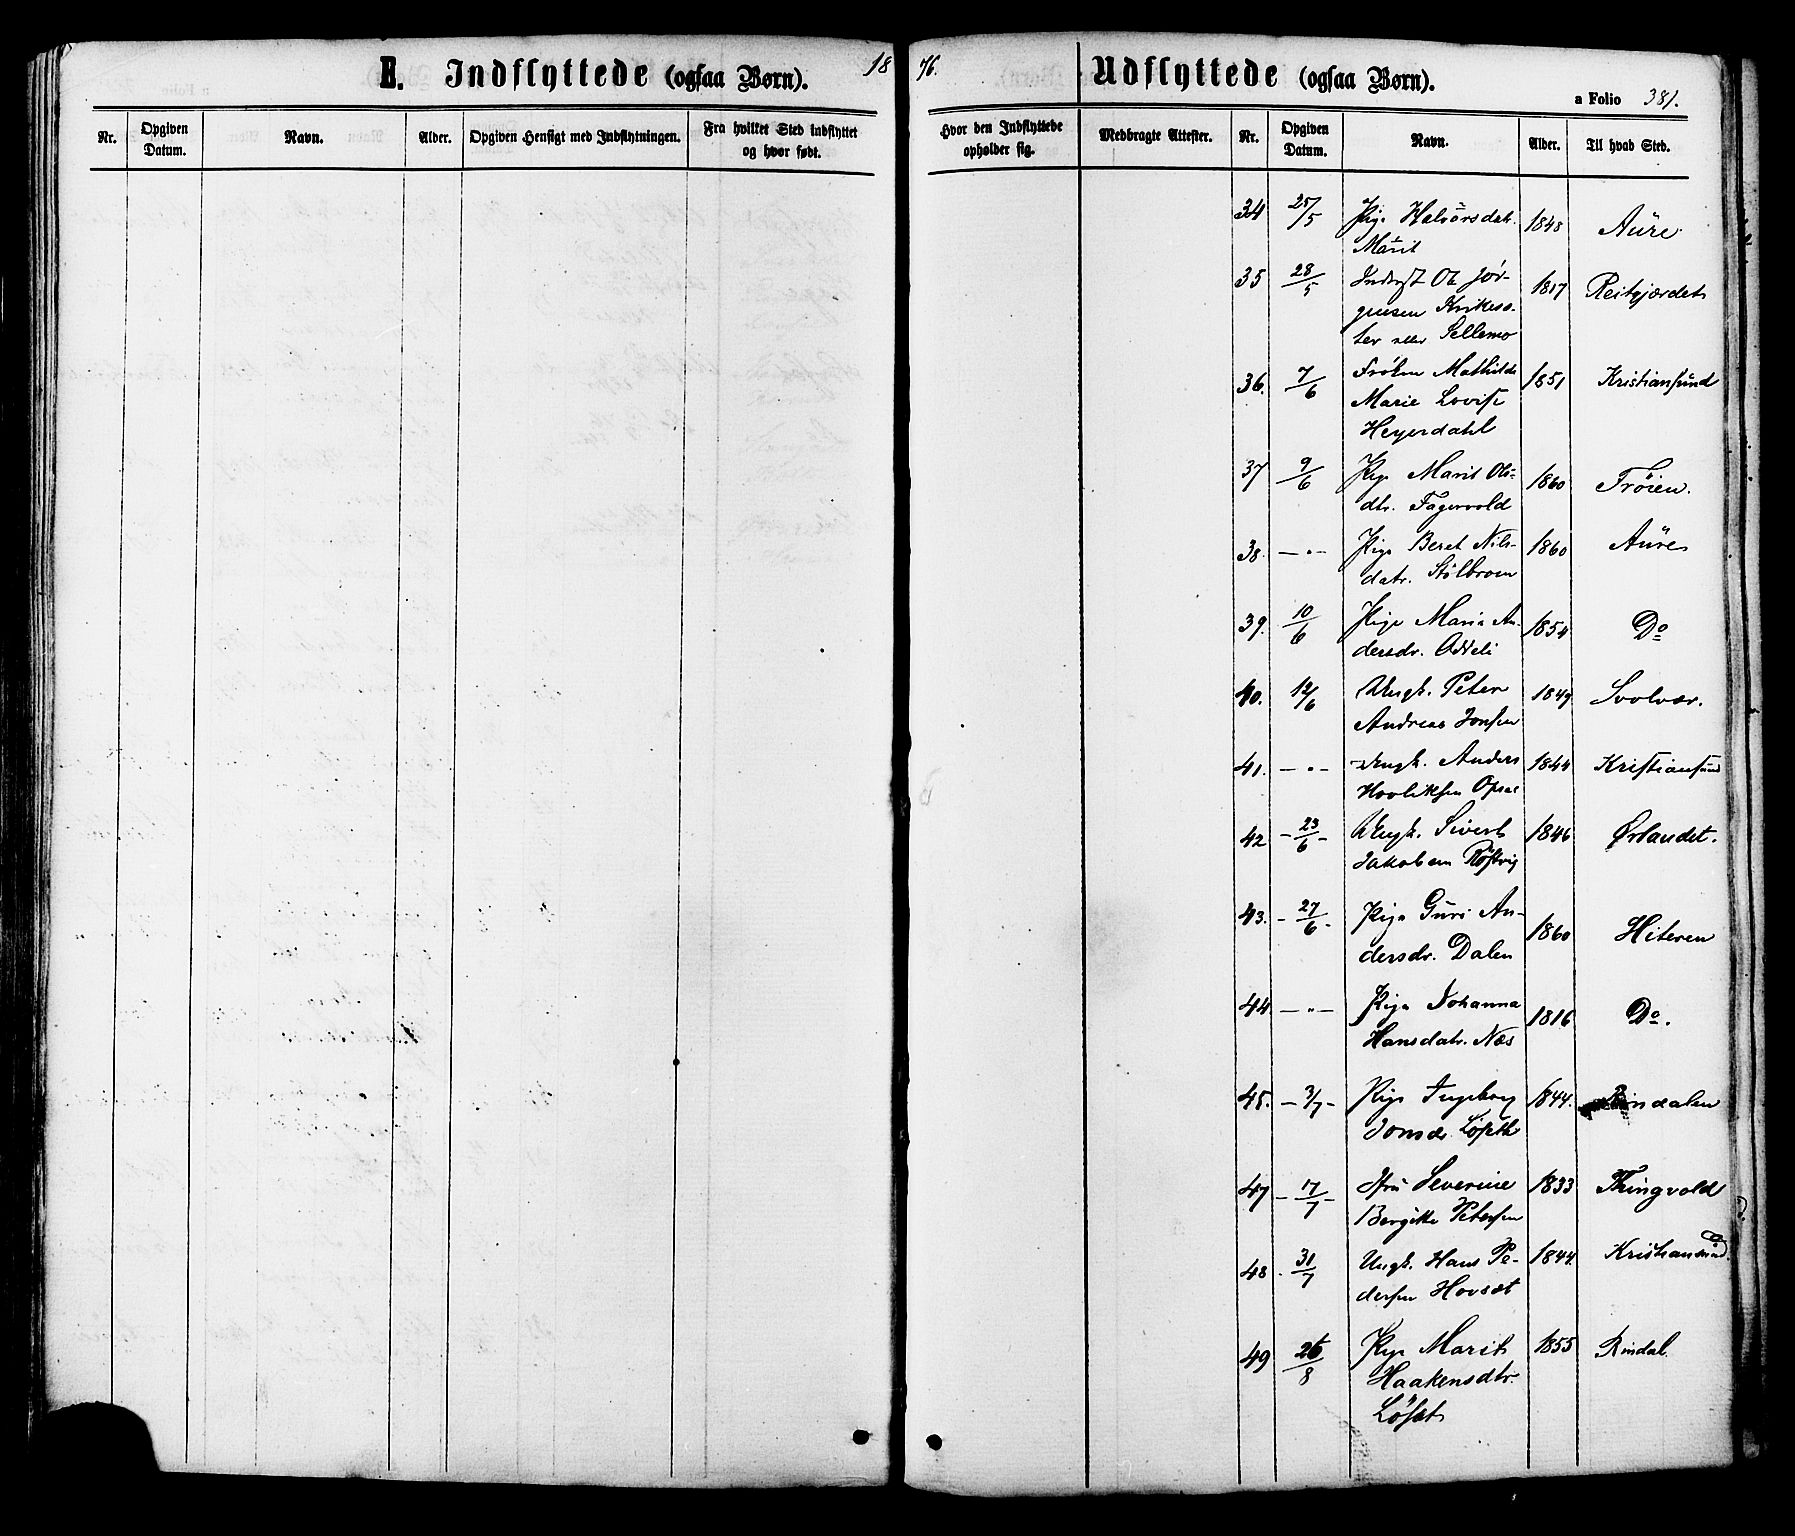 E. Indflyttede (ogsaa Børn). 18
76. Udflyttede (ogsaa Børn).
a Folio 381.
Nr. Opgiven Datum. Navn. Alder. Opgiven Hensigt med Indflytningen. Fra hvilket Sted indflyttet og hvor født.
Hvor den Indflyttede opholder sig. Medbragte Attester. Nr. Opgiven Datum. Navn. Alder. Til hvad Sted.
34 25/5 Pige Halvorsdat. 1848 Aure
Marit
35 28/5 Inderst Ole Jør- 1817 Reitgjærdet
gensen
eller Sellemo
36. 7/6 Frøken Mathilde 1851 Kristiansund
Marie Lovise
Heyerdahl
37 9/6 Pige Marit Ols- 1860 Frøien.
dtr. Fagervold
38. — " — Pige Beret Nils- 1860 Aure
datr. Stølbroen
39. 10/6 Pige Maria An- 1854 Do
dersdr. Oddeli
40. 12/6 Ungk. Peter 1849 Svolvær.
Andreas Jonsen
41. — " — Ungk. Anders 1844 Kristiansund
Opsal
42 23/6 Ungk. Sivert 1846 Ørlandet.
Jakobsen Røstvig
43. 27/6 Pige Guri An- 1860 Hiteren
dersdr. Dalen
44 — " — Pige Johanna 1816 Do.
Hansdatr. Næs
45. 3/7 Pige Ingeborg 1844. Rindalen
Jonsdr. Løseth
47 17/7 Fru Severine 1833 Thingvold
Bergitte Petersen
48. 31/7 Ungk. Hans Pe- 1844. Kristiansund
dersen Hovsæt
49 26/8 Pige Marit 1855 Rindal.
Haakensdtr.
Løset